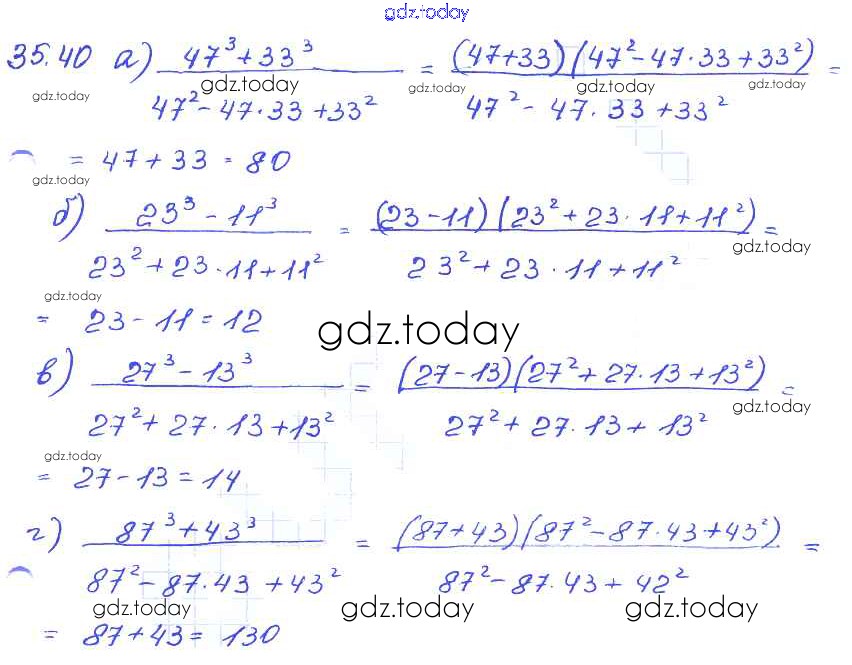 gdz.today
35.40 а) 47³+33³ / 47²-47·33+33² = (47+33)(47²-47·33+33²) / 47²-47·33+33² =
gdz.today gdz.today gdz.today gdz.today
= 47+33 = 80
gdz.today
б) 23³-11³ / 23²+23·11+11² = (23-11)(23²+23·11+11²) / 23²+23·11+11² =
gdz.today
gdz.today
= 23-11=12
gdz.today
в) 27³-13³ / 27²+27·13+13² = (27-13)(27²+27·13+13²) / 27²+27·13+13² =
gdz.today
gdz.today
= 27-13=14
г) 87³+43³ / 87²-87·43+43² = (87+43)(87²-87·43+43²) / 87²-87·43+42² =
gdz.today gdz.today gdz.today
= 87+43= 130